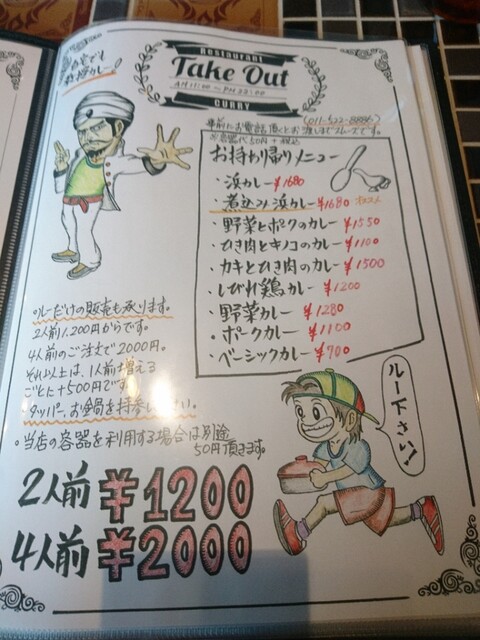 Restaurant
Take Out
AM 11:00 ~ PM 22:00
CURRY
事前にお電話頂くとお渡しまでスムーズです。
※容器代50円+税込
お持ち帰りメニュー
・浜カレー ¥1680
・煮込み浜カレー ¥1680
・野菜とポークのカレー ¥1550
・ひき肉とキノコのカレー ¥1100
・カキとひき肉のカレー ¥1500
・しびれ鶏カレー ¥1200
・野菜カレー ¥1280
・ポークカレー ¥1100
・ベーシックカレー ¥900
ルーだけの販売も承ります。
2人前1.200円からです。
4人前のご注文で2000円。
それ以上は、1人前増える
ごとに+500円です
タッパー、お鍋を持参下さい。
・当店の容器を利用する場合は別途
50円頂きます。
2人前 ¥1200
4人前 ¥2000
ルー下さい!